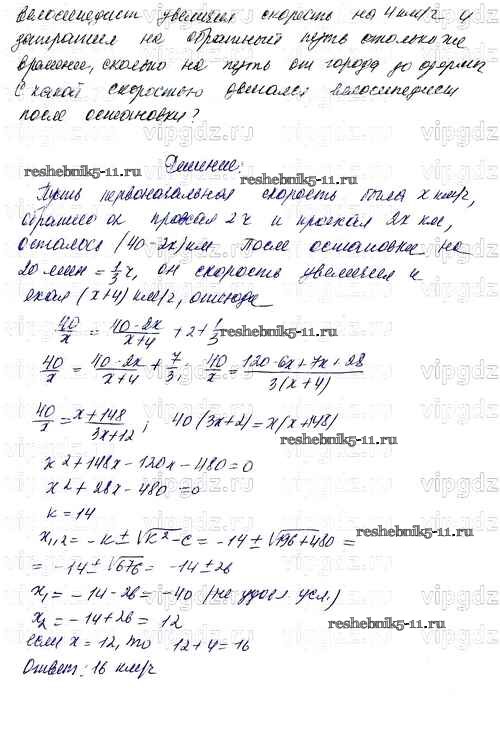 Велосипедист увеличил скорость на 4 км/ч и
затратил на обратный путь столько же
времени, сколько на путь от города до озера.
С какой скоростью двигался велосипедист
после остановки?
Решение:
reshebnik5-11.ru
Пусть первоначальная скорость была x км/ч,
обратно он проехал 2ч и проехал 2x км,
осталось (40-2x) км. После остановки на
20 мин = 1/3 ч, он скорость увеличил и
ехал (x+4) км/ч, отсюда
40/x = (40-2x)/(x+4) + 2 + 1/3
40/x = (40-2x)/(x+4) + 7/3; 40/x = (120-6x+7x+28)/(3(x+4))
40/x = (x+148)/(3x+12); 40(3x+2)=x(x+148)
reshebnik5-11.ru
x²+148x-120x-480=0
x²+28x-480=0
k=14
x₁,₂ = -k±√(k²-c) = -14±√(196+480) =
reshebnik5-11.ru
= -14±√676 = -14±26
x₁ = -14-26 = -40 (не удовл. усл.)
x₂ = -14+26 = 12
reshebnik5-11.ru
если x = 12, то 12+4=16
Ответ: 16 км/ч